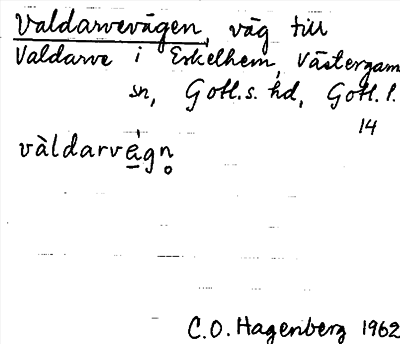 Valdarvevägen, väg till
Valdarve i Eskelhem, Västergarn
sn, Gotl. s. hd, Gotl. l.
14
vàldarvägn̥
C.O. Hagenberg 1962